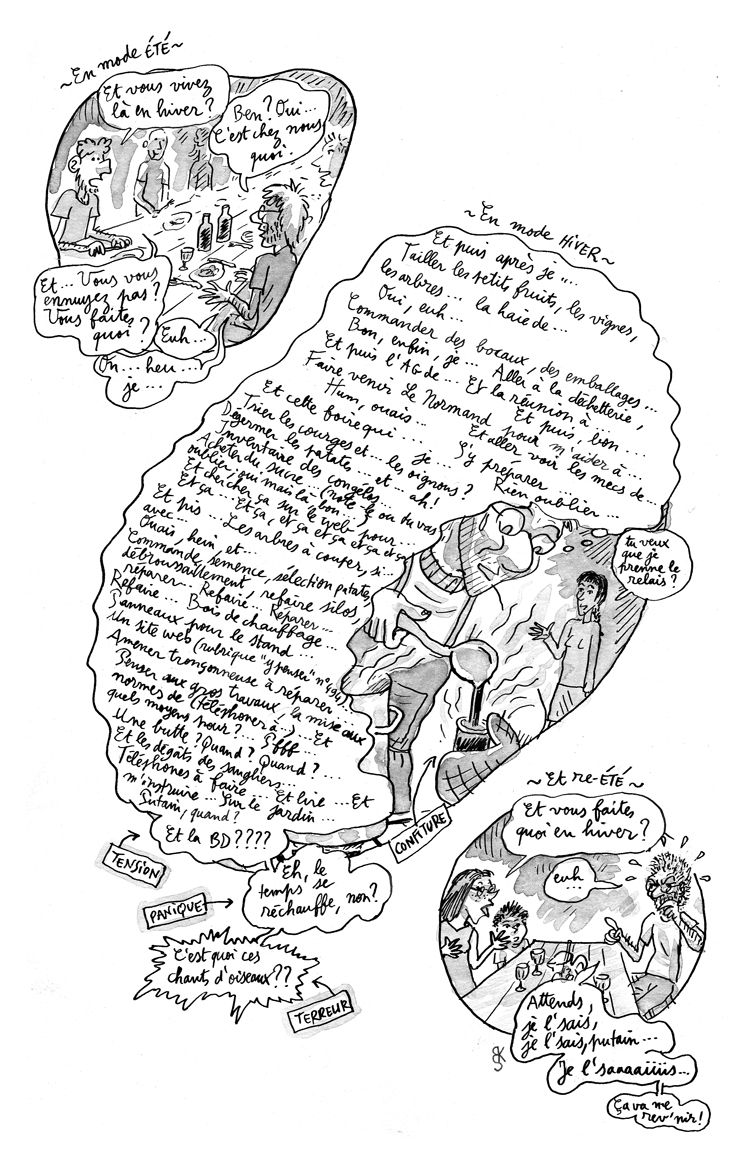 ~En mode ÉTÉ~
Et vous vivez
là en hiver?
Ben? Oui...
C'est chez nous
quoi!
Et... Vous vous
ennuyez pas?
Vous faites
quoi?
Euh...
On... heu...
je...
~En mode HIVER~
Et puis après je....
Tailler les petits fruits, les vignes,
les arbres... la haie de...
Oui, euh...
Commander des bocaux, des emballages...
Bon, enfin, je... Aller à la déchetterie,
Et puis l'AG de... Et la réunion à...
Faire venir Le Normand pour m'aider à...
Hum, ouais... Et puis, bon...
Et cette foire qui... Et aller voir les mecs de...
Trier les courges et... je... S'y préparer...
Dégermer les patates... les oignons? Rien oublier...
Inventaire des congelos... et... ah!
Acheter du sucre... (note le ou tu vas
oublier, oui mais là bon...)
Et chercher ça sur le web pour...
Et ça... Et ça, et ça et ça et ça et ça
Et pis... Les arbres à couper, si...
avec...
Ouais, hein, et...
Commande, semence, sélection patates,
débroussaillement, refaire silos,
réparer... Refaire... Réparer...
Refaire... Bois de chauffage...
Panneaux pour le stand...
Un site web (rubrique "y penser" n°494)...
Amener tronçonneuse à réparer...
Penser aux gros travaux, la mise aux
normes de (téléphoner à..)... Et
quels moyens pour?... Pfff
Une butte? Quand? Quand?...
Et les dégâts des sangliers...
Téléphones à faire... Et lire... Et
m'instruire... Sur le jardin...
Putain, quand?
Et la BD????
tu veux
que je
prenne le
relais?
CONFITURE
TENSION
Eh, le
temps se
réchauffe, non?
PANIQUE
C'est quoi ces
chants d'oiseaux??
TERREUR
~Et re-ÉTÉ~
Et vous faites
quoi en hiver?
euh
...
Attends,
je l'sais,
je l'sais, putain...
Je l'saaaaiiiis...
Ça va me
rev'nir!